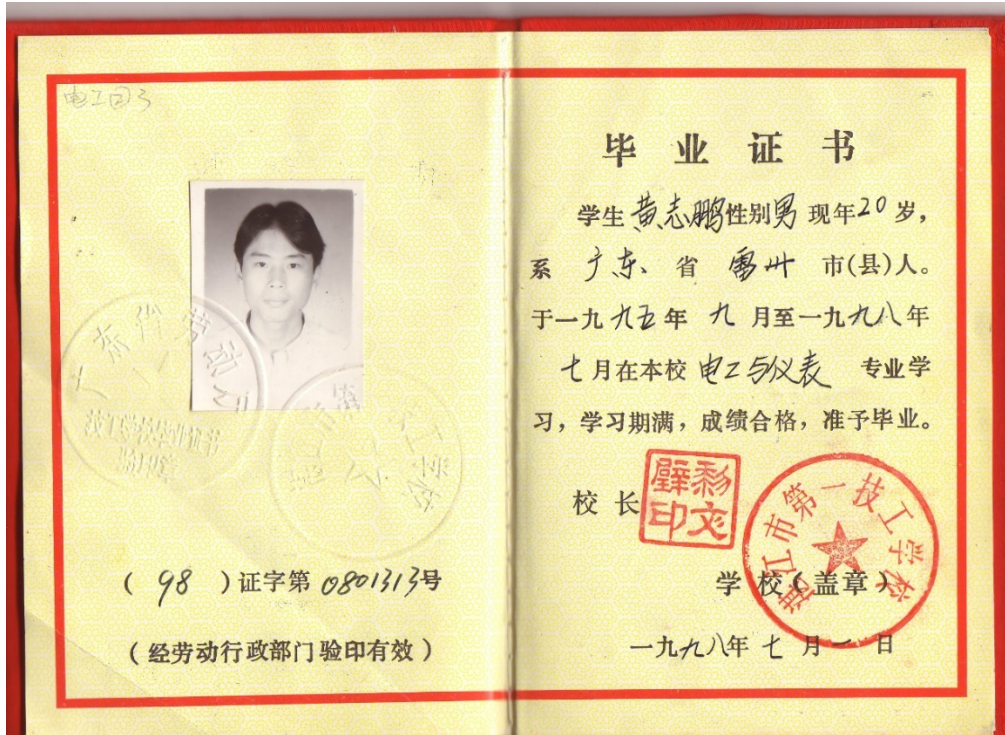 电工回3
广东省劳动
技工学校毕业证书
验印
(98)证字第0801313号
(经劳动行政部门验印有效)
毕业证书
学生黄志鹏性别男现年20岁,
系广东省雷州市(县)人。
于一九九五年九月至一九九八年
七月在本校电工与仪表专业学
习,学习期满,成绩合格,准予毕业。
校长
湛江市第一技工学校
学校(盖章)
一九九八年七月一日